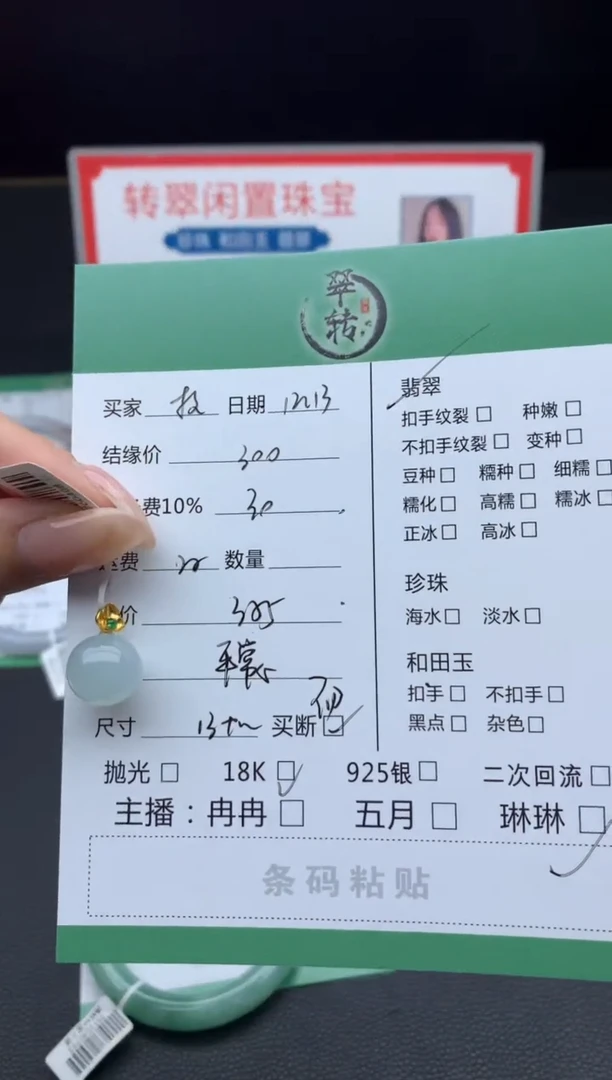 转翠闲置珠宝
珍珠 和田玉 翡翠
翠
转
买家 技 日期 12.13
结缘价 300
费10% 30
费 数量
价
平安
尺寸 13 买断
翡翠
扣手纹裂 □ 种嫩 □
不扣手纹裂 □ 变种 □
豆种 □ 糯种 □ 细糯 □
糯化 □ 高糯 □ 糯冰 □
正冰 □ 高冰 □
珍珠
海水 □ 淡水 □
和田玉
扣手 □ 不扣手 □
黑点 □ 杂色 □
抛光 □ 18K □ 925银 □ 二次回流 □
主播：冉冉 □ 五月 □ 琳琳 □
条码粘贴